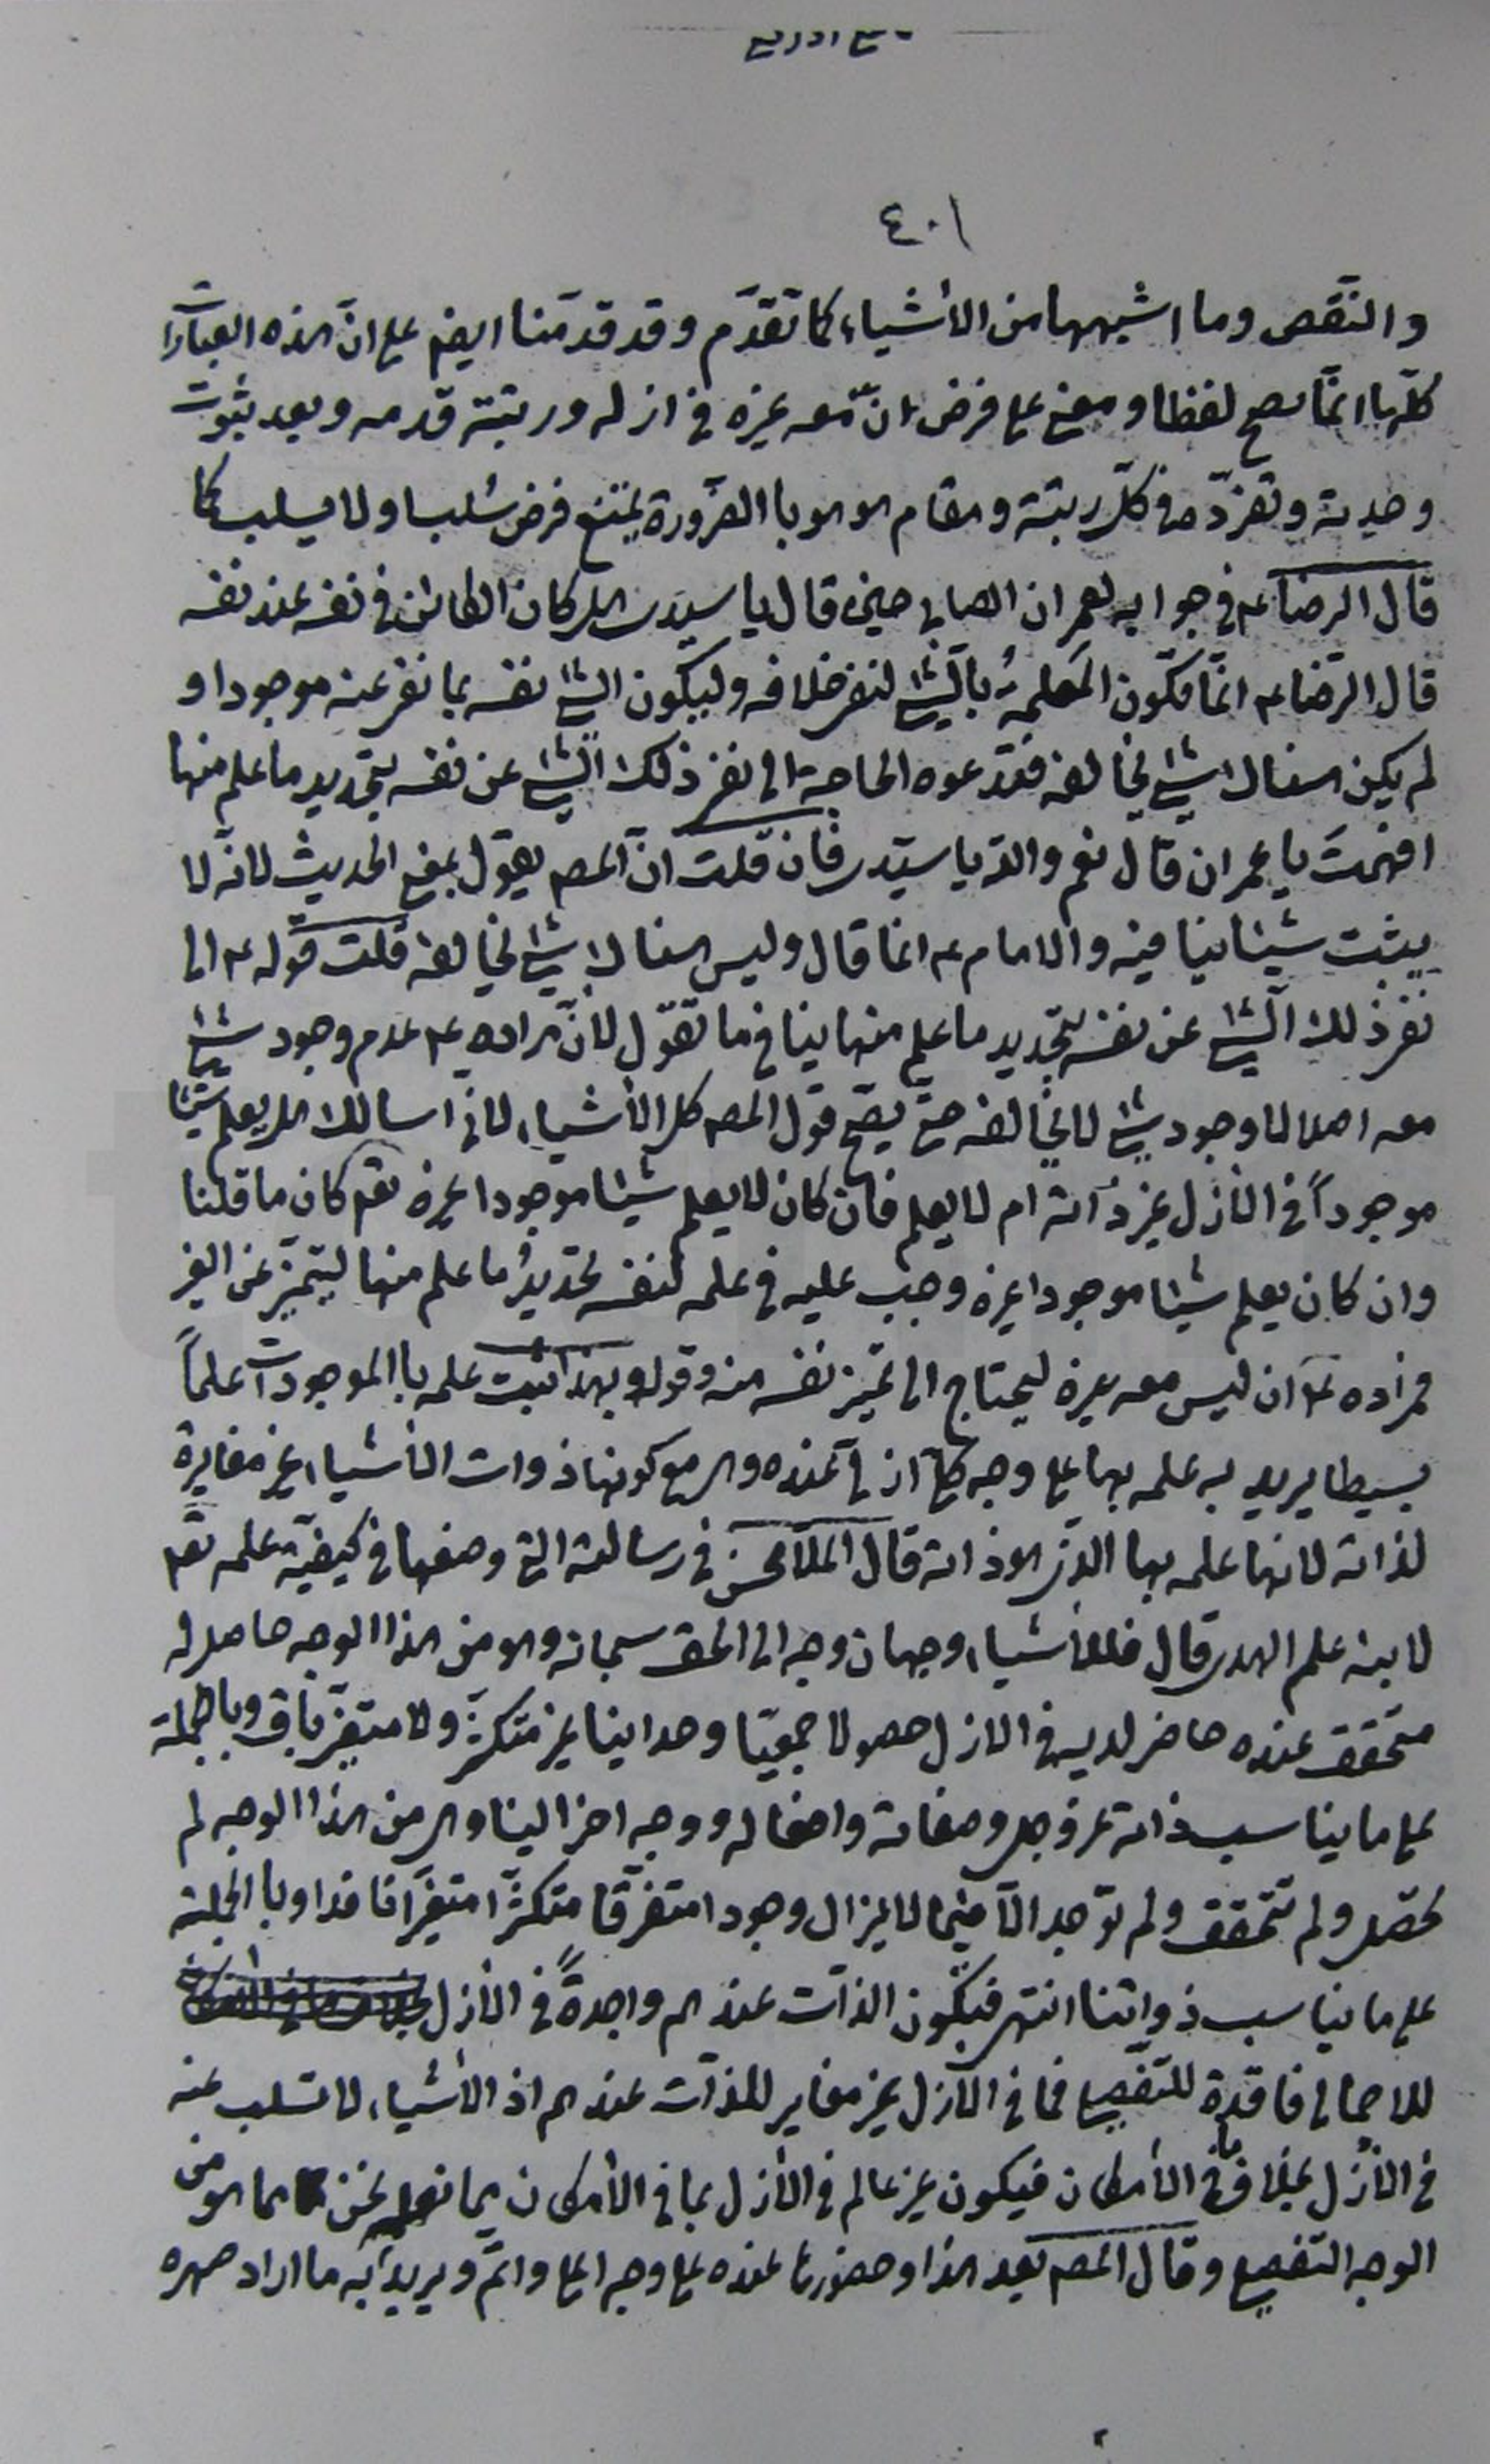 ٤٠١
والنقص وما اشبهها من الأشياء كما تقدّم وقد قدمّنا ايضم على انّ هذه العبارات
كلّها انمّا تصح لفظا ومعنى على فرض انّ معه غيره فى ازله ورتبة قدمه وبعد ثبوت
وحدته وتفرّده فى كلّ رتبة ومقام هو هو با الضّرورة يمتنع فرض سلب اولا يسلب كما
قال الرضا ع فى جوابه لعمران الصابى حين قال يا سيّدى هل كان الكائن فى نفسه عند نفسه
قال الرّضا ع انمّا تكون المعلمة بالشئ لنفى خلافه وليكون الشئ نفسه بما نفى عنه موجودا و
لم يكن هناك شئ يخالفه فتدعوه الحاجة الى نفى ذلك الشئ عن نفسه بتحديد ما علم منها
افهمتَ يا عمران قال نعم والله يا سيّدى فان قلت انّ المصم يقول بمعنى الحديث لانّه لا
يثبت شيئا ينافيه والامام ع انما قال وليس هناك شئ يخالفه قلت قوله ع الى
نفى ذلك الشئ عن نفسه بتحديد ما علم منها ينافى ما تقوّل لأنّ مراده ع عدم وجود شئ
معه اصلا لا وجود شئ لا يخالفه حتى يصحّ قول المصم كل الأشياء لانى اسالك هل يعلم شيئا
موجوداً فى الأزل غير ذاته ام لا يعلم فان كان لا يعلم شيئا موجودا غيره تعم كان ما قلنا
وان كان يعلم شيئا موجودا غيره وجب عليه فى علمه لنفسه تحديدُ ما علم منها ليتميّز عن الغير
فمراده ع ان ليس معه غيره ليحتاج الى تميّز نفسه منه وقوله وبهذا اثبت علمه با الموجودات علماً
بسيطا يريد به علمه بها على وجه كلّى ازلى عنده وهى مع كونها ذوات الأشياء غير مغايرة
لذاته لانها علمه بها الذى هو ذاته قال الملّا محسن فى رسالته التى وصفها فى كيفيّة علمه تعم
لابنه علم الهدى قال فللأشياء وجهان وجه الى الحق سبحانه وهو من هذا الوجه حاصل له
متحقق عنده حاضر لديه فى الازل حصولا جمعيّا وحدانيا غير متكثّر ولا متغيّر باق وبالجملة
على ما يناسب ذاته عز وجل وصفاته وافعاله ووجه اخر الينا وهى من هذا الوجه لم
تحصّل ولم تتحقق ولم توجد الّا فيما لا يزال وجودا متفرّقا متكثّرا متغيّرا نافدا وبا الجملة
على ما يناسب ذواتنا انتهى فيكون الذّات عندهم واجدةً فى الأزل
للاجمالى فاقدة للتّفصيلى فما فى الأزل غير مغاير للذات عندهم اذ الأشياء لا تسلب عنه
فى الأزل بخلاف ما فى الأمكان فيكون غير عالم فى الأزل بما فى الأمكان بما نعلمه نحن مما هو من
الوجه التّفصيلى وقال المصم بعد هذا وحضورها عنده على وجه اعلى واتمّ ويريد به ما اراد صهره